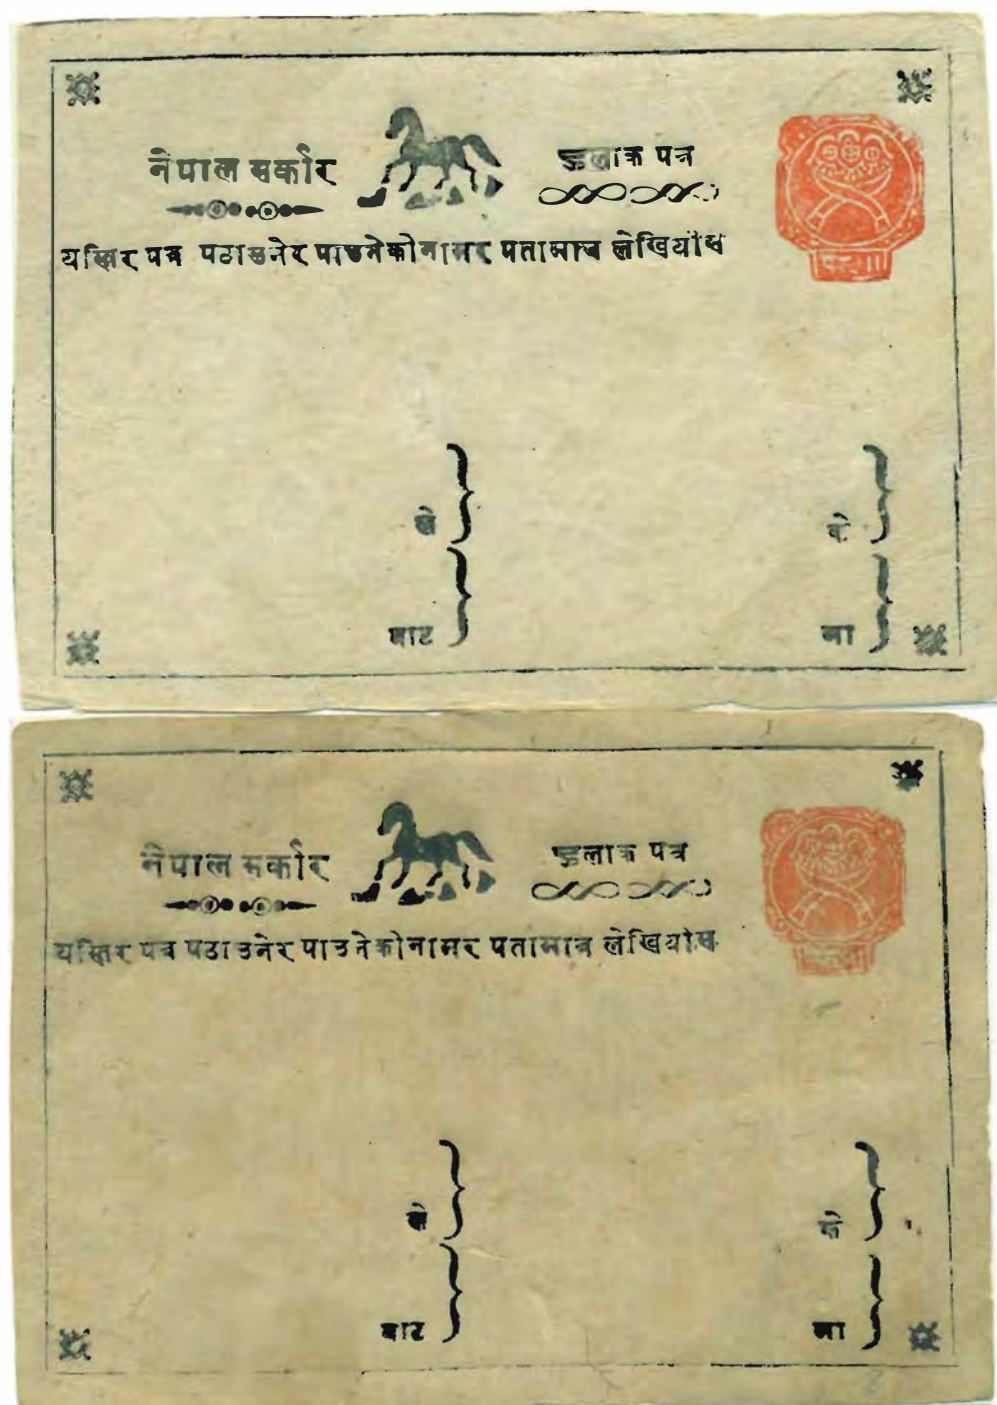 नेपाल सर्कार
हुलाक पत्र
यस्तिर पत्र पठाउनेर पाउनेको नामर पतामात्र लेखियोस
ले
के
बाट
मा
नेपाल सर्कार
हुलाक पत्र
यस्तिर पत्र पठाउनेर पाउनेको नामर पतामात्र लेखियोस
ले
के
बाट
मा